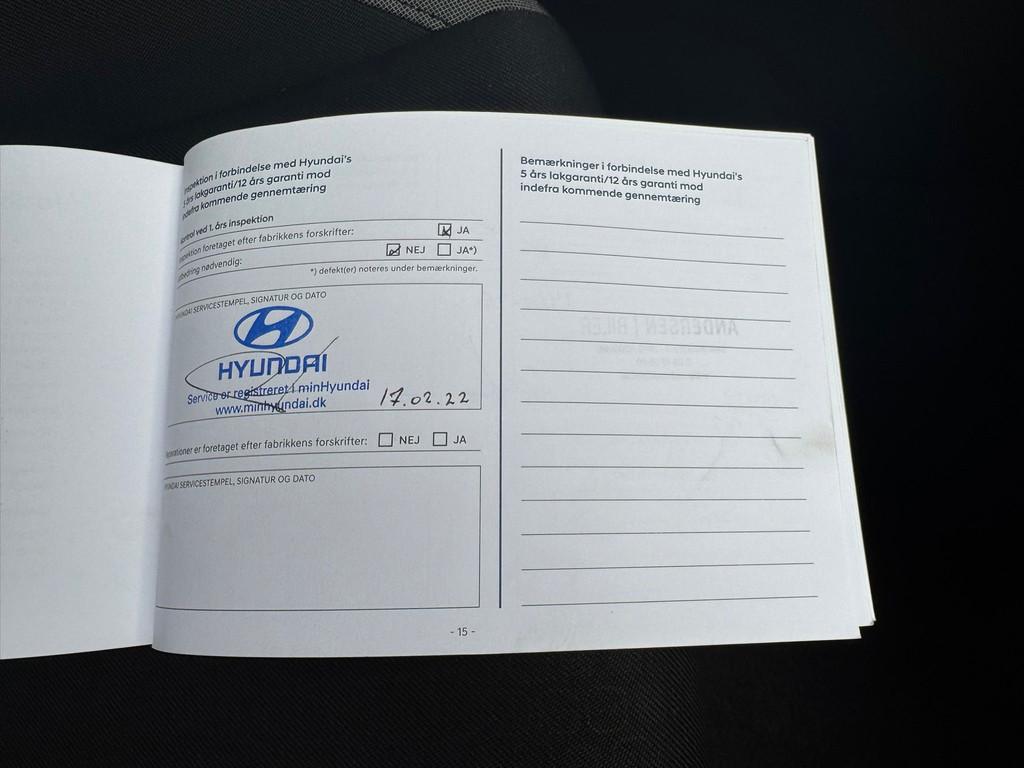 Inspektion i forbindelse med Hyundai's
5 års lakgaranti/12 års garanti mod
indefra kommende gennemtæring
Kontrol ved 1. års inspektion
Inspektion foretaget efter fabrikkens forskrifter: JA
nødvendig: NEJ JA*)
*) defekt(er) noteres under bemærkninger.
HYUNDAI SERVICESTEMPEL, SIGNATUR OG DATO
HYUNDAI
Service er registreret i minHyundai
www.minhyundai.dk
17.02.22
Reparationer er foretaget efter fabrikkens forskrifter: NEJ JA
HYUNDAI SERVICESTEMPEL, SIGNATUR OG DATO
- 15 -
Bemærkninger i forbindelse med Hyundai's
5 års lakgaranti/12 års garanti mod
indefra kommende gennemtæring
ANDERSEN | BILER